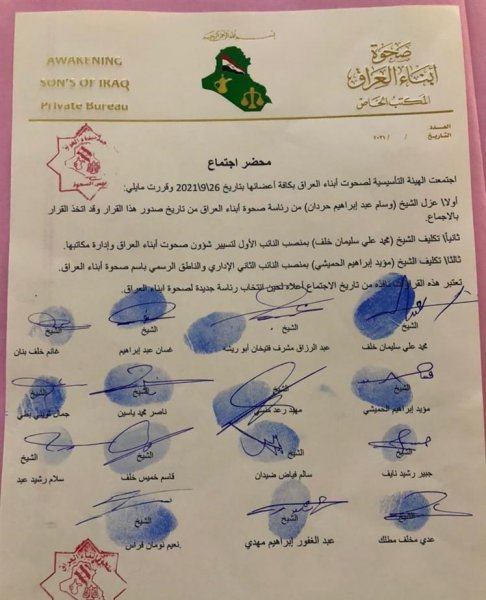 بسم الله الرحمن الرحيم
AWAKENING
SON'S OF IRAQ
Private Bureau
صحوة
أبناء العراق
المكتب الخاص
العدد
التاريخ / / ٢٠٢١
محضر اجتماع
اجتمعت الهيئة التأسيسية لصحوت أبناء العراق بكافة أعضائها بتاريخ 26\9\2021 وقررت مايلي:
أولا\ عزل الشيخ (وسام عبد إبراهيم حردان) من رئاسة صحوة أبناء العراق من تاريخ صدور هذا القرار وقد اتخذ القرار
بالاجماع.
ثانيا\ تكليف الشيخ (محمد علي سليمان خلف) بمنصب النائب الأول لتسيير شؤون صحوت أبناء العراق وإدارة مكاتبها.
ثالثا\ تكليف الشيخ (مؤيد إبراهيم الحميشي) بمنصب النائب الثاني الإداري والناطق الرسمي باسم صحوة أبناء العراق.
تعتبر هذه القرارات نافذه من تاريخ الاجتماع أعلاه لحين انتخاب رئاسة جديدة لصحوة ابناء العراق.
الشيخ الشيخ الشيخ الشيخ
محمد علي سليمان خلف عبد الرزاق مشرف فتيخان أبو ريشة غسان عبد إبراهيم غانم خلف بنان
الشيخ الشيخ
مؤيد إبراهيم الحميشي مهند رعد ناصر محمد ياسين جمال
الشيخ الشيخ الشيخ الشيخ
جبير رشيد نايف سالم فياض ضيدان قاسم خميس خلف سلام رشيد عبد
الشيخ الشيخ الشيخ
عدي مخلف مطلك عبد الغفور إبراهيم مهدي نعيم نومان فراس.